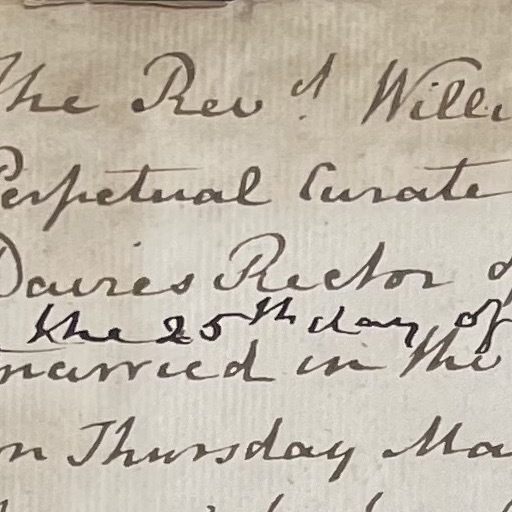 The Rev.d Willi
Perpetual Curate
Davies Rector of
the 25th day of
married in the
on Thursday Ma